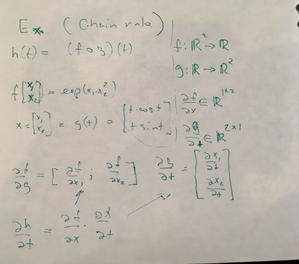 Ex. (Chain rule)
h(t) = (f o g)(t)
f: ℝ² → ℝ
g: ℝ → ℝ²
f[x₁ x₂] = exp(x₁ · x₂²)
x = [x₁ x₂] = g(t) = [t cos t t sin t]
∂f/∂x ∈ ℝ^{1×2}
∂g/∂t ∈ ℝ^{2×1}
∂f/∂g = [∂f/∂x₁ ; ∂f/∂x₂]
∂g/∂t = [∂x₁/∂t ∂x₂/∂t]
∂h/∂t = ∂f/∂x · ∂x/∂t